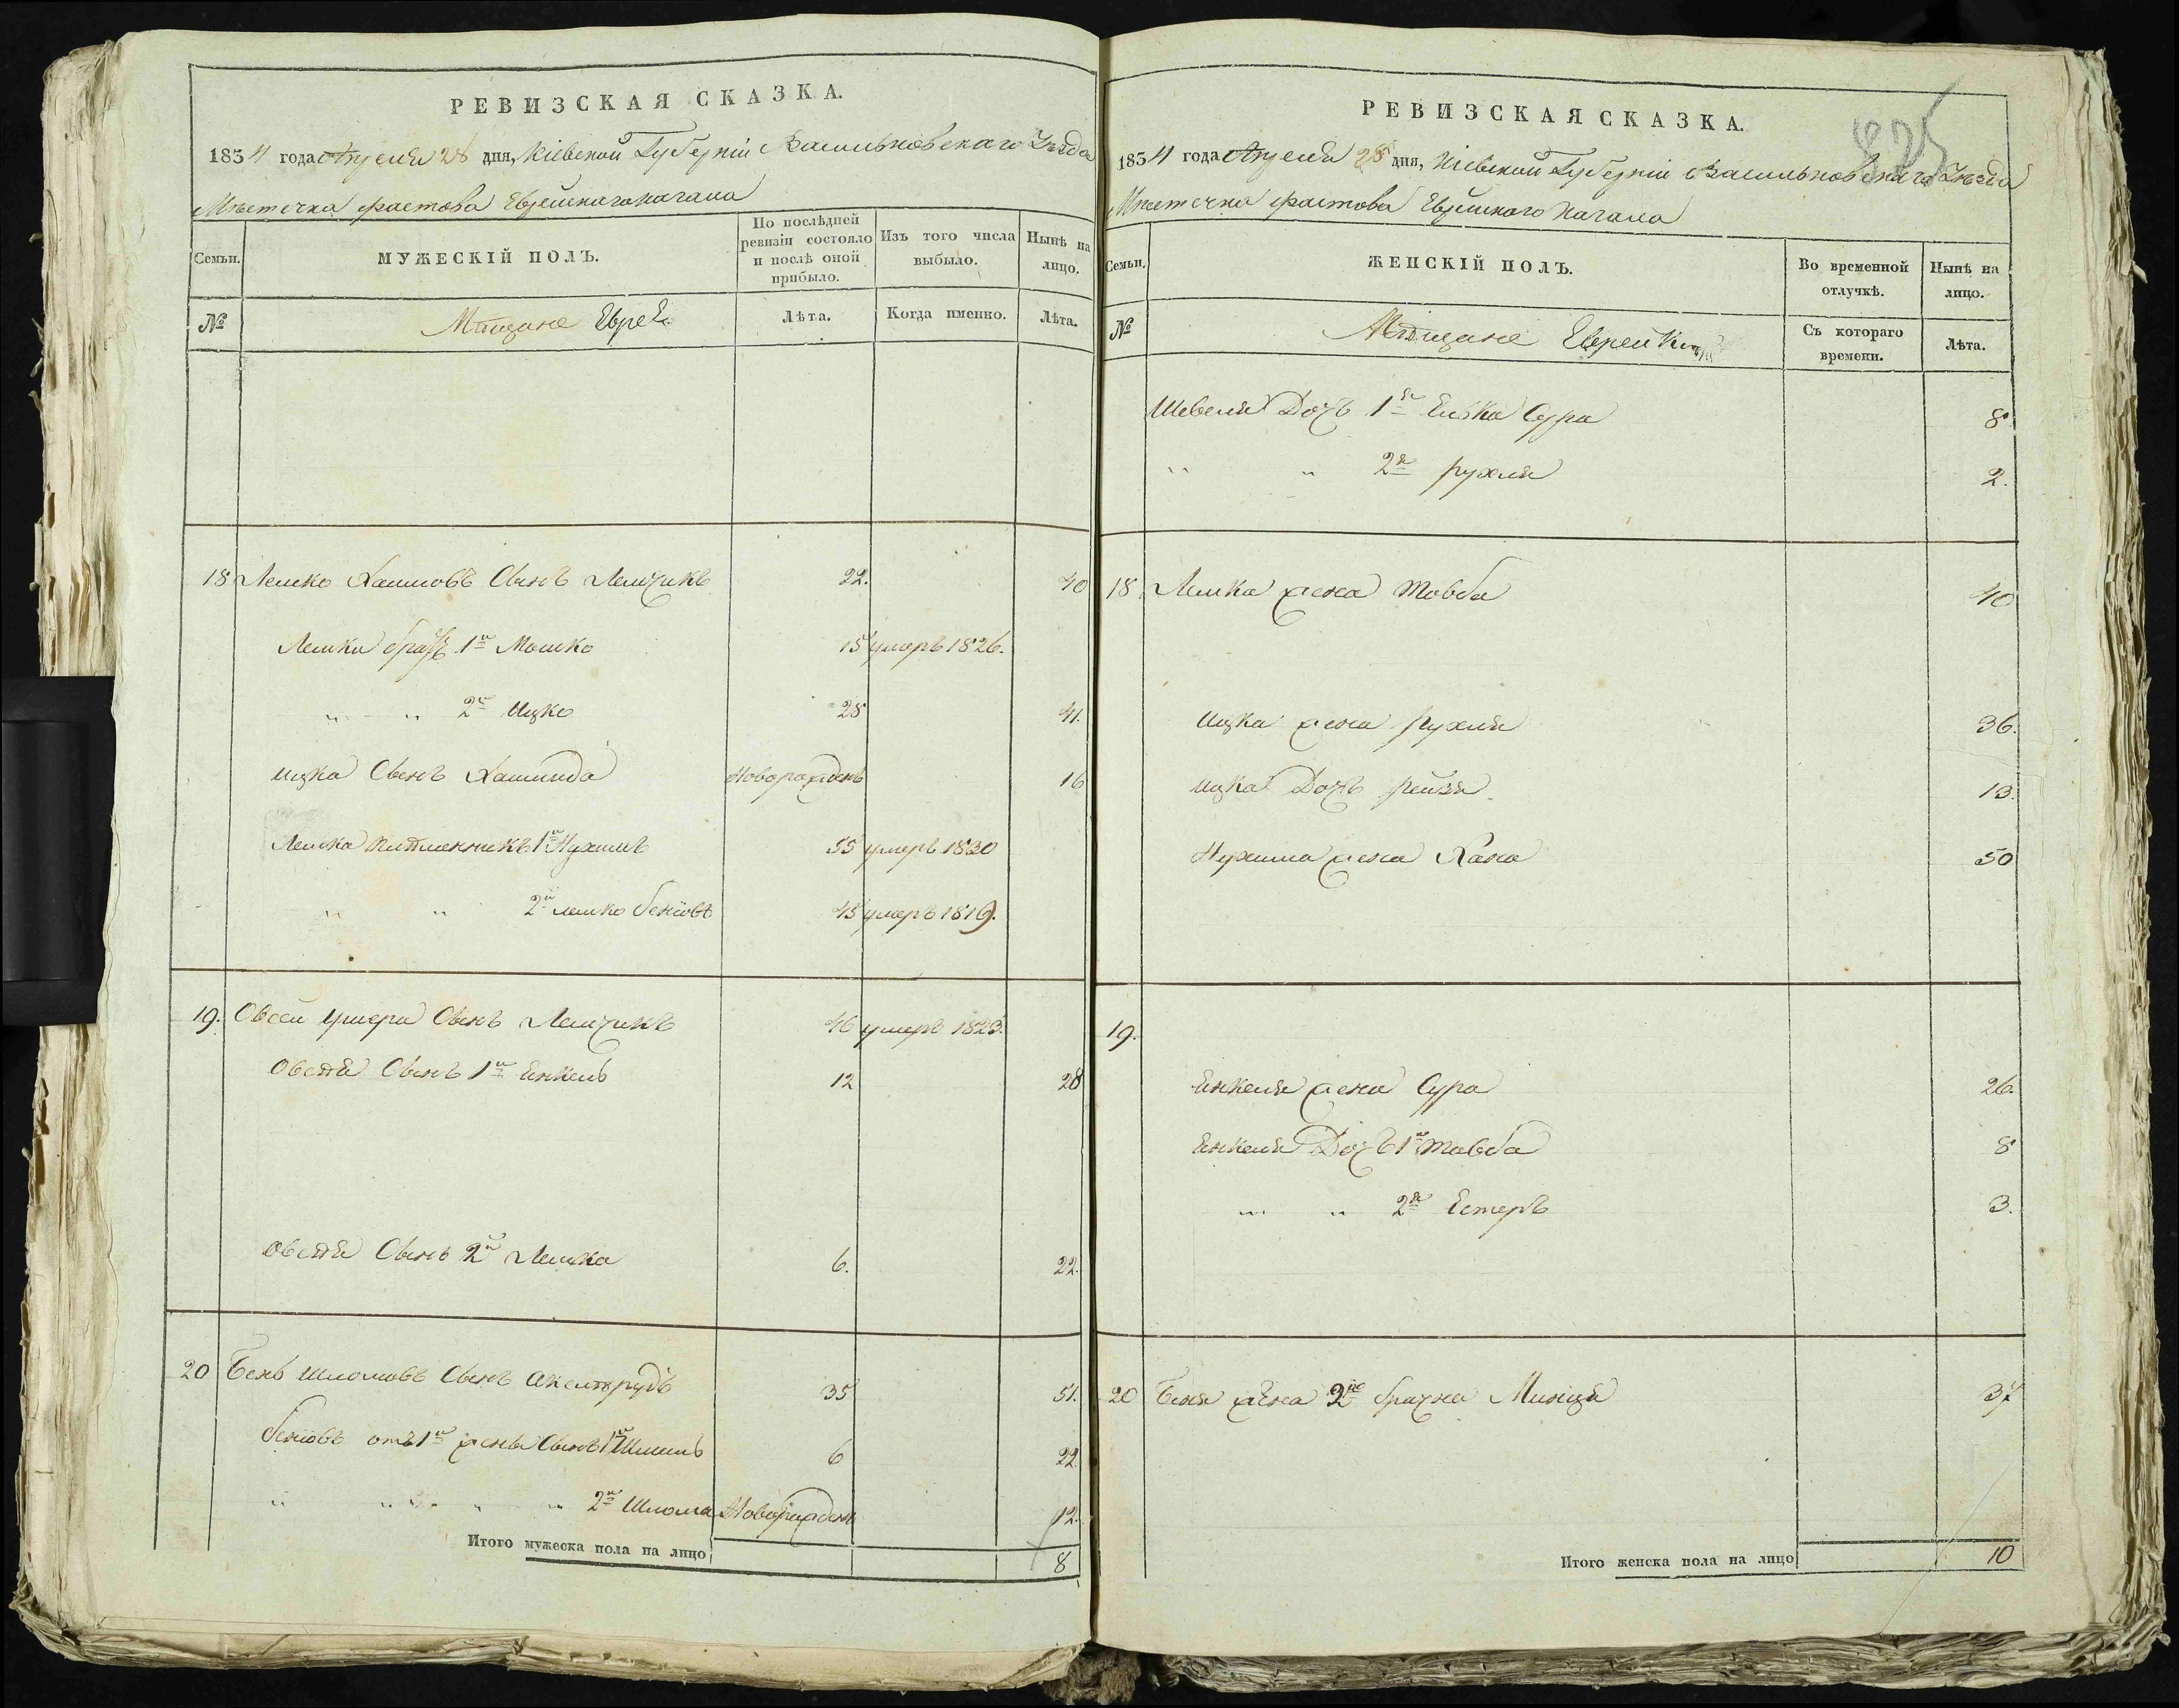 РЕВИЗСКАЯ СКАЗКА.
1834 года Апреля 28 дня, Кіевской Губерніи Васильковскаго Уѣзда
Мѣстечка Фастова Еврейскаго Кагала
Семьи.
МУЖЕСКІЙ ПОЛЪ.
По послѣдней ревизіи состояло и послѣ оной прибыло.
Изъ того числа выбыло.
Нынѣ на лицо.
№
Мѣщане Евреи
Лѣта.
Когда именно.
Лѣта.
18 Лейко Хаимовъ Сынъ 22. 40
братъ 1й Мошко 15 умеръ 1826.
" " 2й Ицко 25 41.
Ицка Сынъ Новорожденъ 16
1й Нухимъ 55 умеръ 1830
" " 2й 45 умеръ 1819.
19. Овсей Сынъ 46 умеръ 1823.
Овсѣя Сынъ 1й Енкель 12 28
Овсѣя Сынъ 2й 6. 22.
20 Бень Шломовъ Сынъ 35 51.
отъ 1й жены Сынъ 1й 6 22.
" " " " 2й Шлома Новорожденъ 12.
Итого мужеска пола на лицо 8
РЕВИЗСКАЯ СКАЗКА.
825
1834 года Апреля 28 дня, Кіевской Губерніи Васильковскаго Уѣзда
Мѣстечка Фастова Еврейского Кагала
Семьи.
ЖЕНСКІЙ ПОЛЪ.
Во временной отлучкѣ.
Нынѣ на лицо.
№
Мѣщане Еврейки
Съ котораго времени.
Лѣта.
Шевеля Дочь 1я Сура 8
" " 2я Рухля 2.
18 жена Товба 40
Ицка жена Рухля 36.
Ицка Дочь Рейзя 13.
Нухима жена Хана 50
19.
Енкеля жена Сура 26.
Енкеля Дочь 1я Товба 8
" " 2я Естеръ 3.
20 Беня жена 2го брачна Минця 37
Итого женска пола на лицо 10